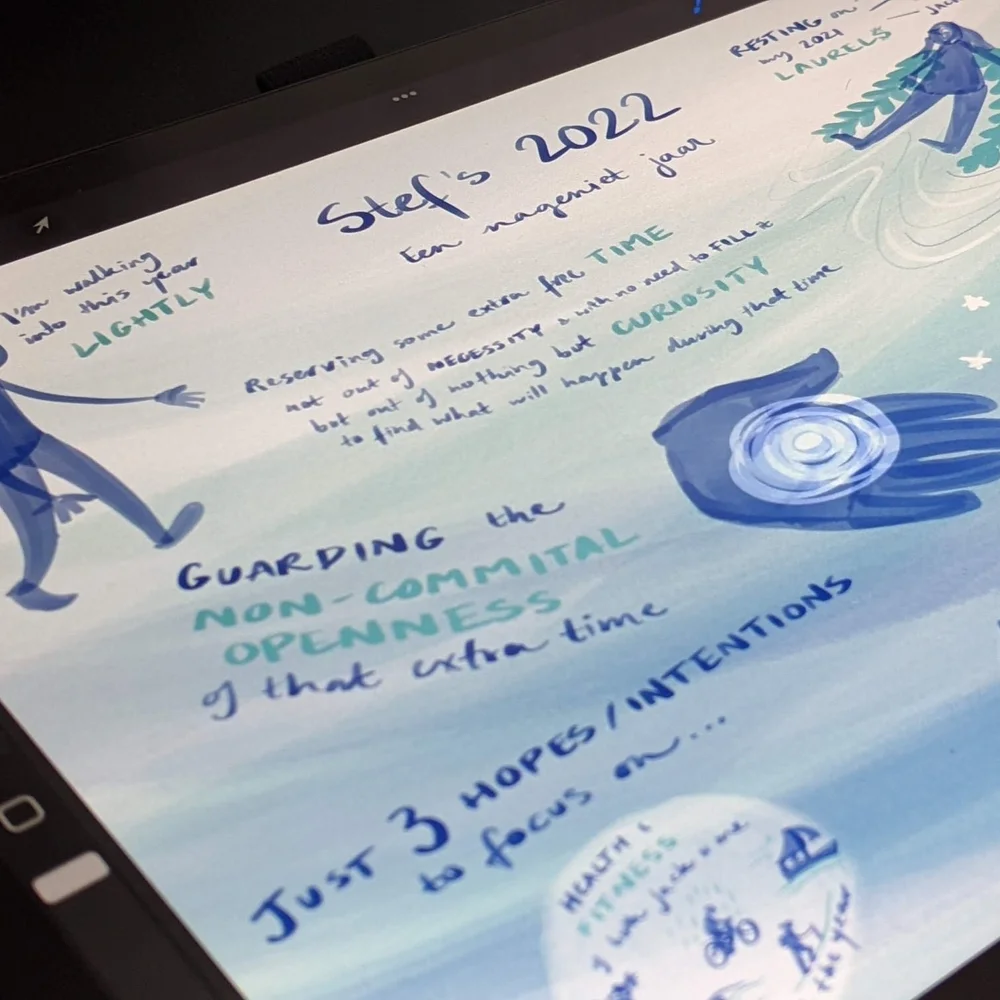 Stef's 2022
Een nageniet jaar
RESTING on
my 2021
LAURELS
I'm walking
into this year
LIGHTLY
Reserving some extra free TIME
not out of NECESSITY & with no need to FILL it
but out of nothing but CURIOSITY
to find what will happen during that time
GUARDING the
NON-COMMITAL
OPENNESS
of that extra time
JUST 3 HOPES/INTENTIONS
to focus on...
HEALTH &
FITNESS
jack & me
the year